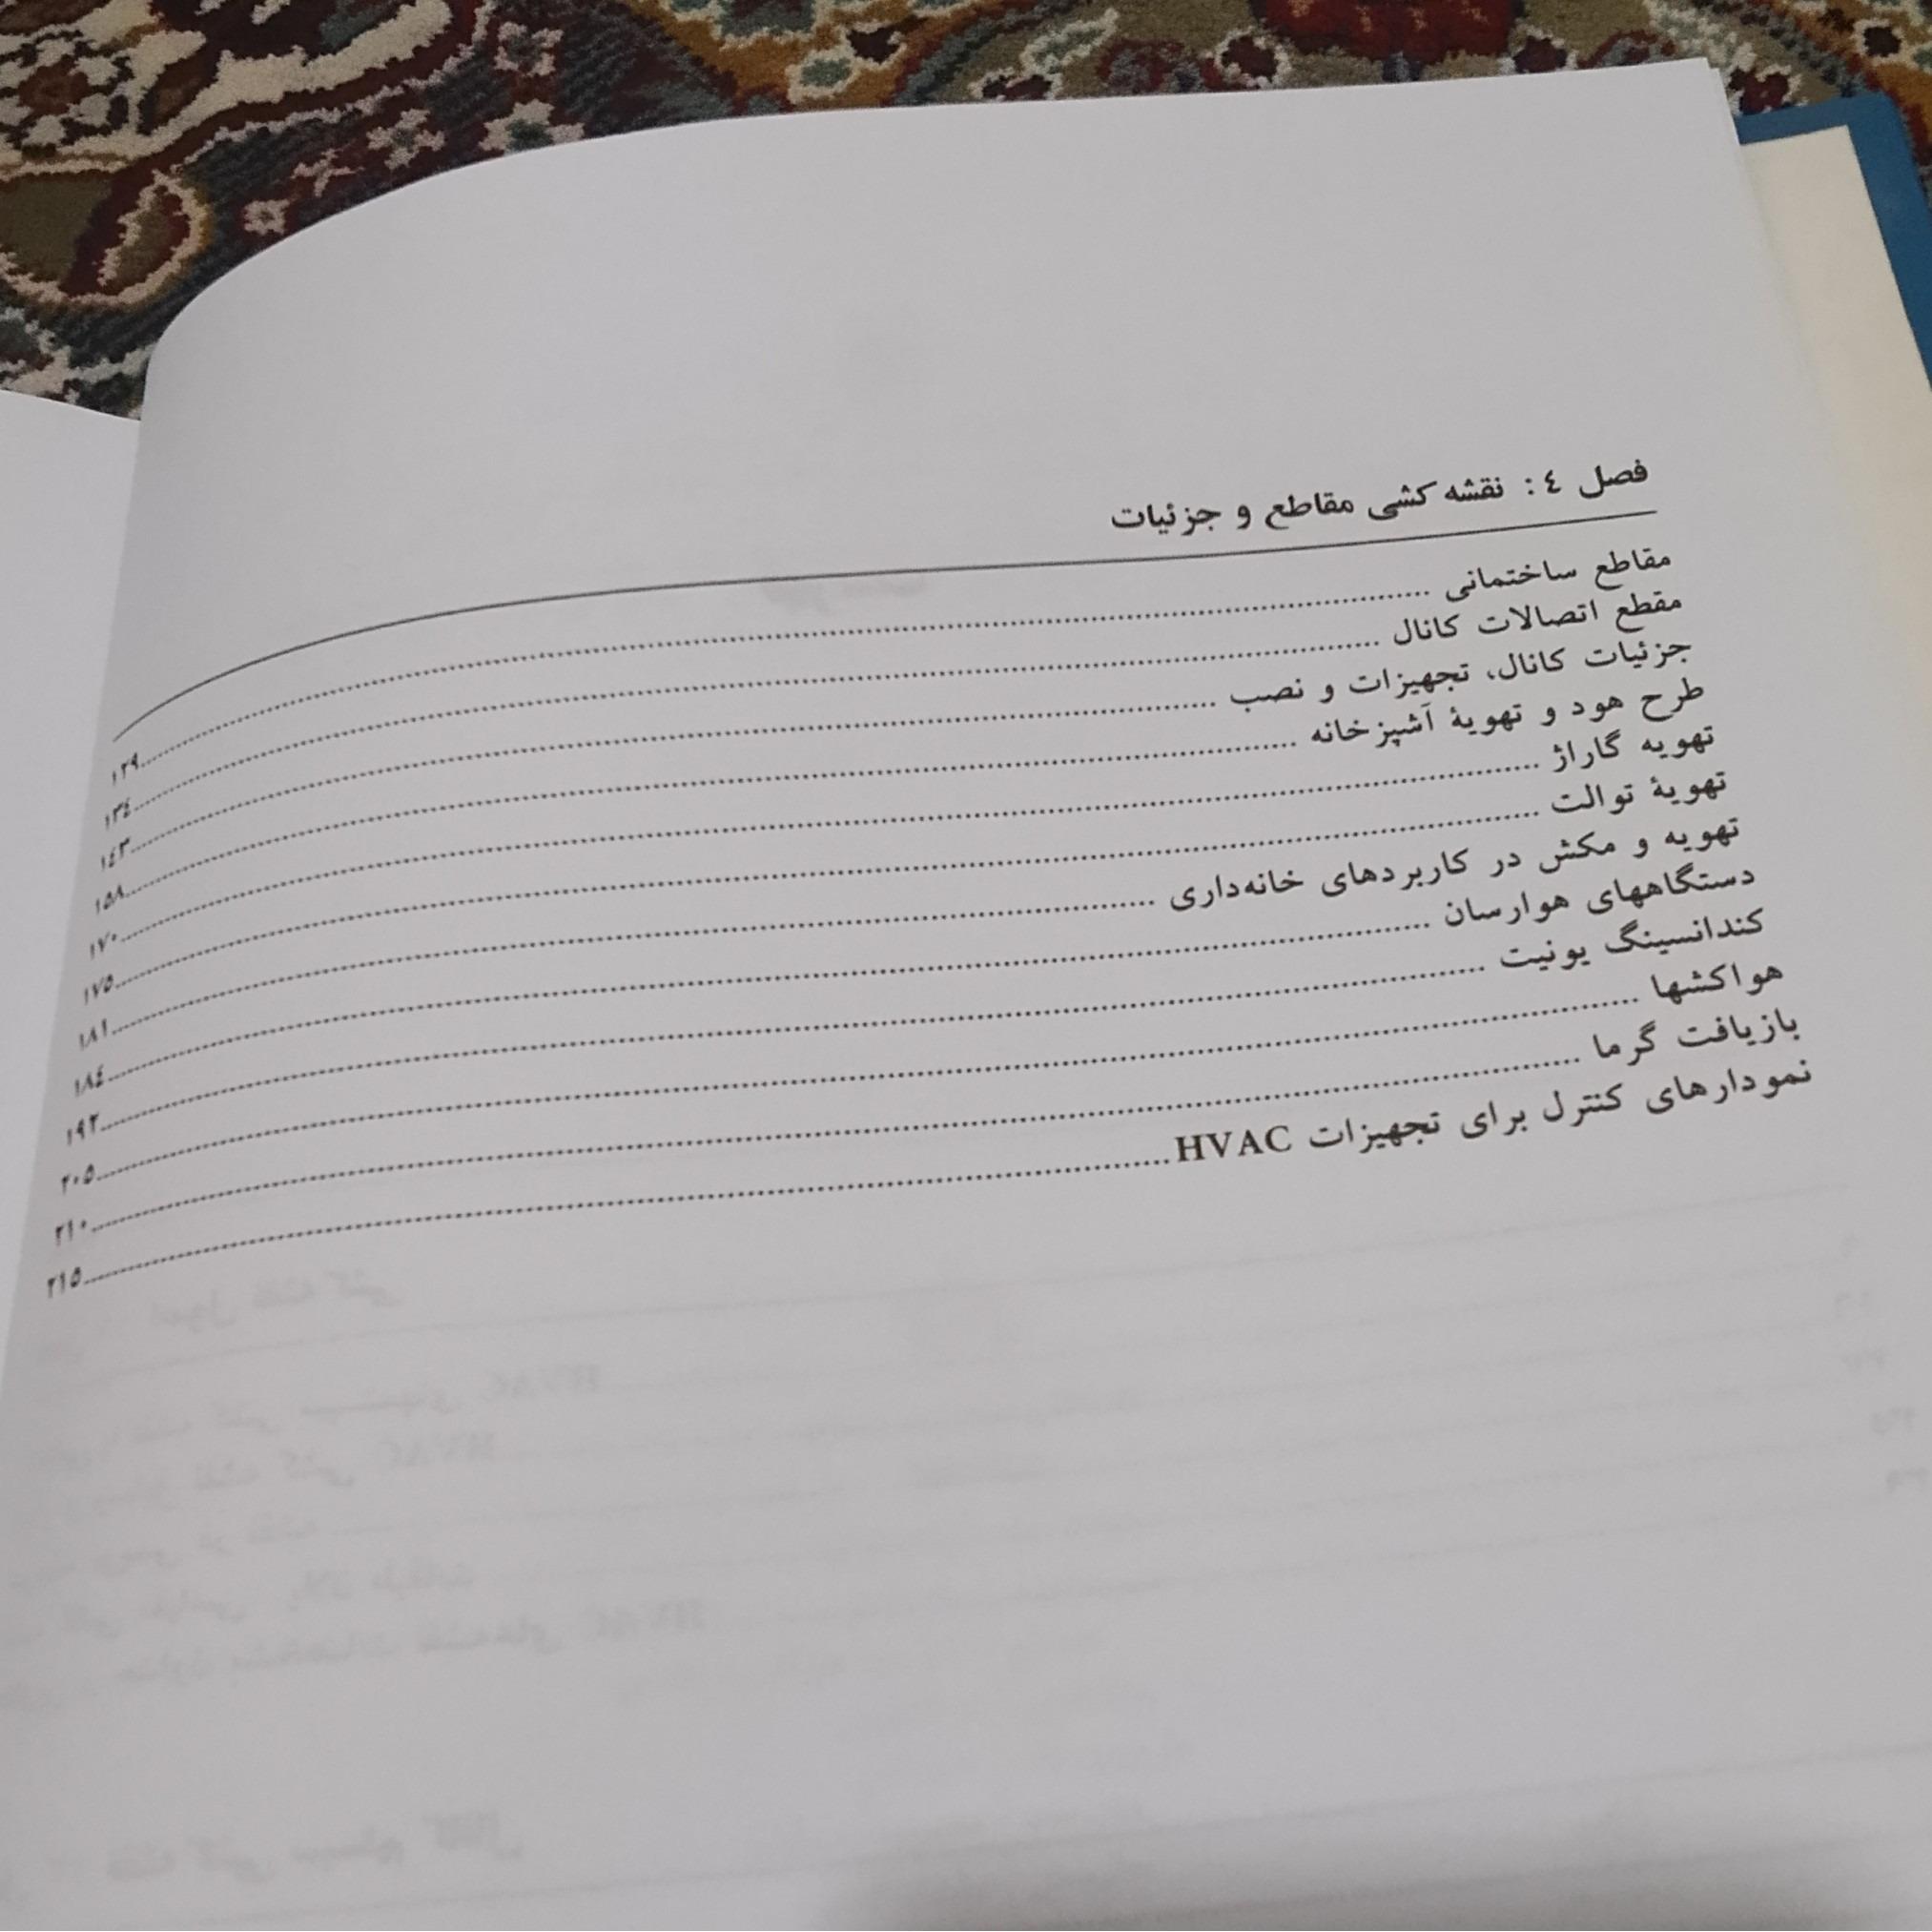 فصل ٤: نقشه کشی مقاطع و جزئیات
مقاطع ساختمانی ........ ۱۲۹
مقطع اتصالات کانال ........ ۱۳٤
جزئیات کانال، تجهیزات و نصب ........ ۱٤۳
طرح هود و تهویۀ آشپزخانه ........ ۱۵۸
تهویه گاراژ ........ ۱۷۰
تهویۀ توالت ........ ۱۷۵
تهویه و مکش در کاربردهای خانه‌داری ........ ۱۸۱
دستگاههای هوارسان ........ ۱۸٤
کندانسینگ یونیت ........ ۱۹۲
هواکشها ........ ۲۰۵
بازیافت گرما ........ ۲۱۰
نمودارهای کنترل برای تجهیزات HVAC ........ ۲۱۵